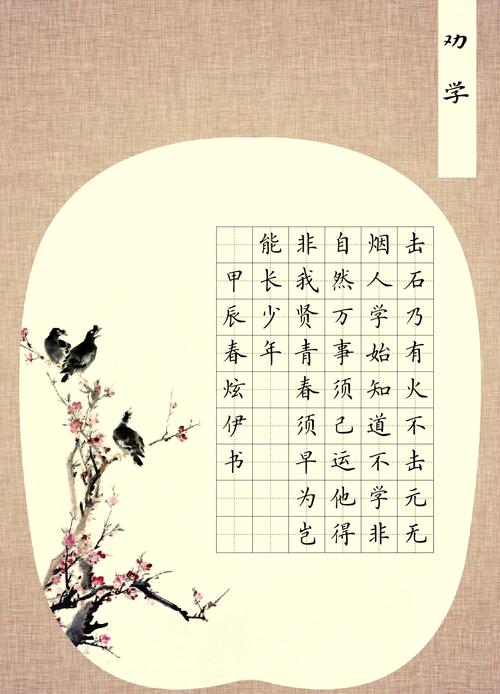 劝学
击石乃有火不击元无
烟人学始知道不学非
自然万事须己运他得
非我贤青春须早为岂
能长少年
甲辰春炫伊书